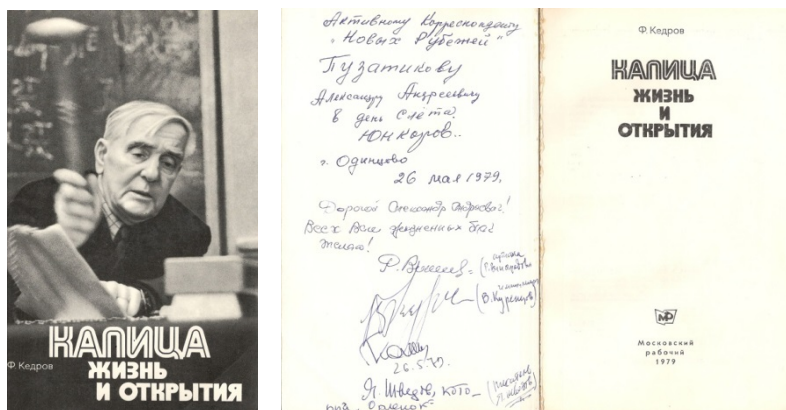 КАПИЦА
Ф. Кедров
ЖИЗНЬ
И ОТКРЫТИЯ
Активному Корреспонденту
"Новых Рубежей"
Пузатикову
Александру Андреевичу
в день слёта
Юнкоров..
г. Одинцово
26 мая 1979.
Дорогой Александр Андреевич!
Всех Вам жизненных благ
желаю!
(В. Куренцов)
26.5.79.
Я. Шведов, кото-
рый "Орленок"
Ф. Кедров
КАПИЦА
ЖИЗНЬ
И
ОТКРЫТИЯ
МР
Московский
рабочий
1979